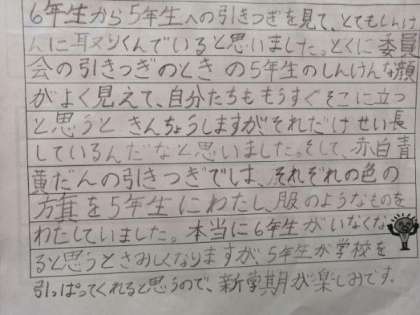 6年生から5年生への引きつぎを見て、とてもしんけ
んに取りくんでいると思いました。とくに委員
会の引きつぎのとき の5年生のしんけんな顔
がよく見えて、自分たちももうすぐそこに立つ
と思うと きんちょうしますがそれだけ せい長
しているんだなと思いました。そして、赤白青
黄だんの引きつぎでは、それぞれの色の
を5年生 にわたし、服のようなものを
わたしていました。本当に6年生がいなくな
ると思うとさみしくなりますが、5年生が学校を
引っぱってくれると思うので、新学期が楽しみです。